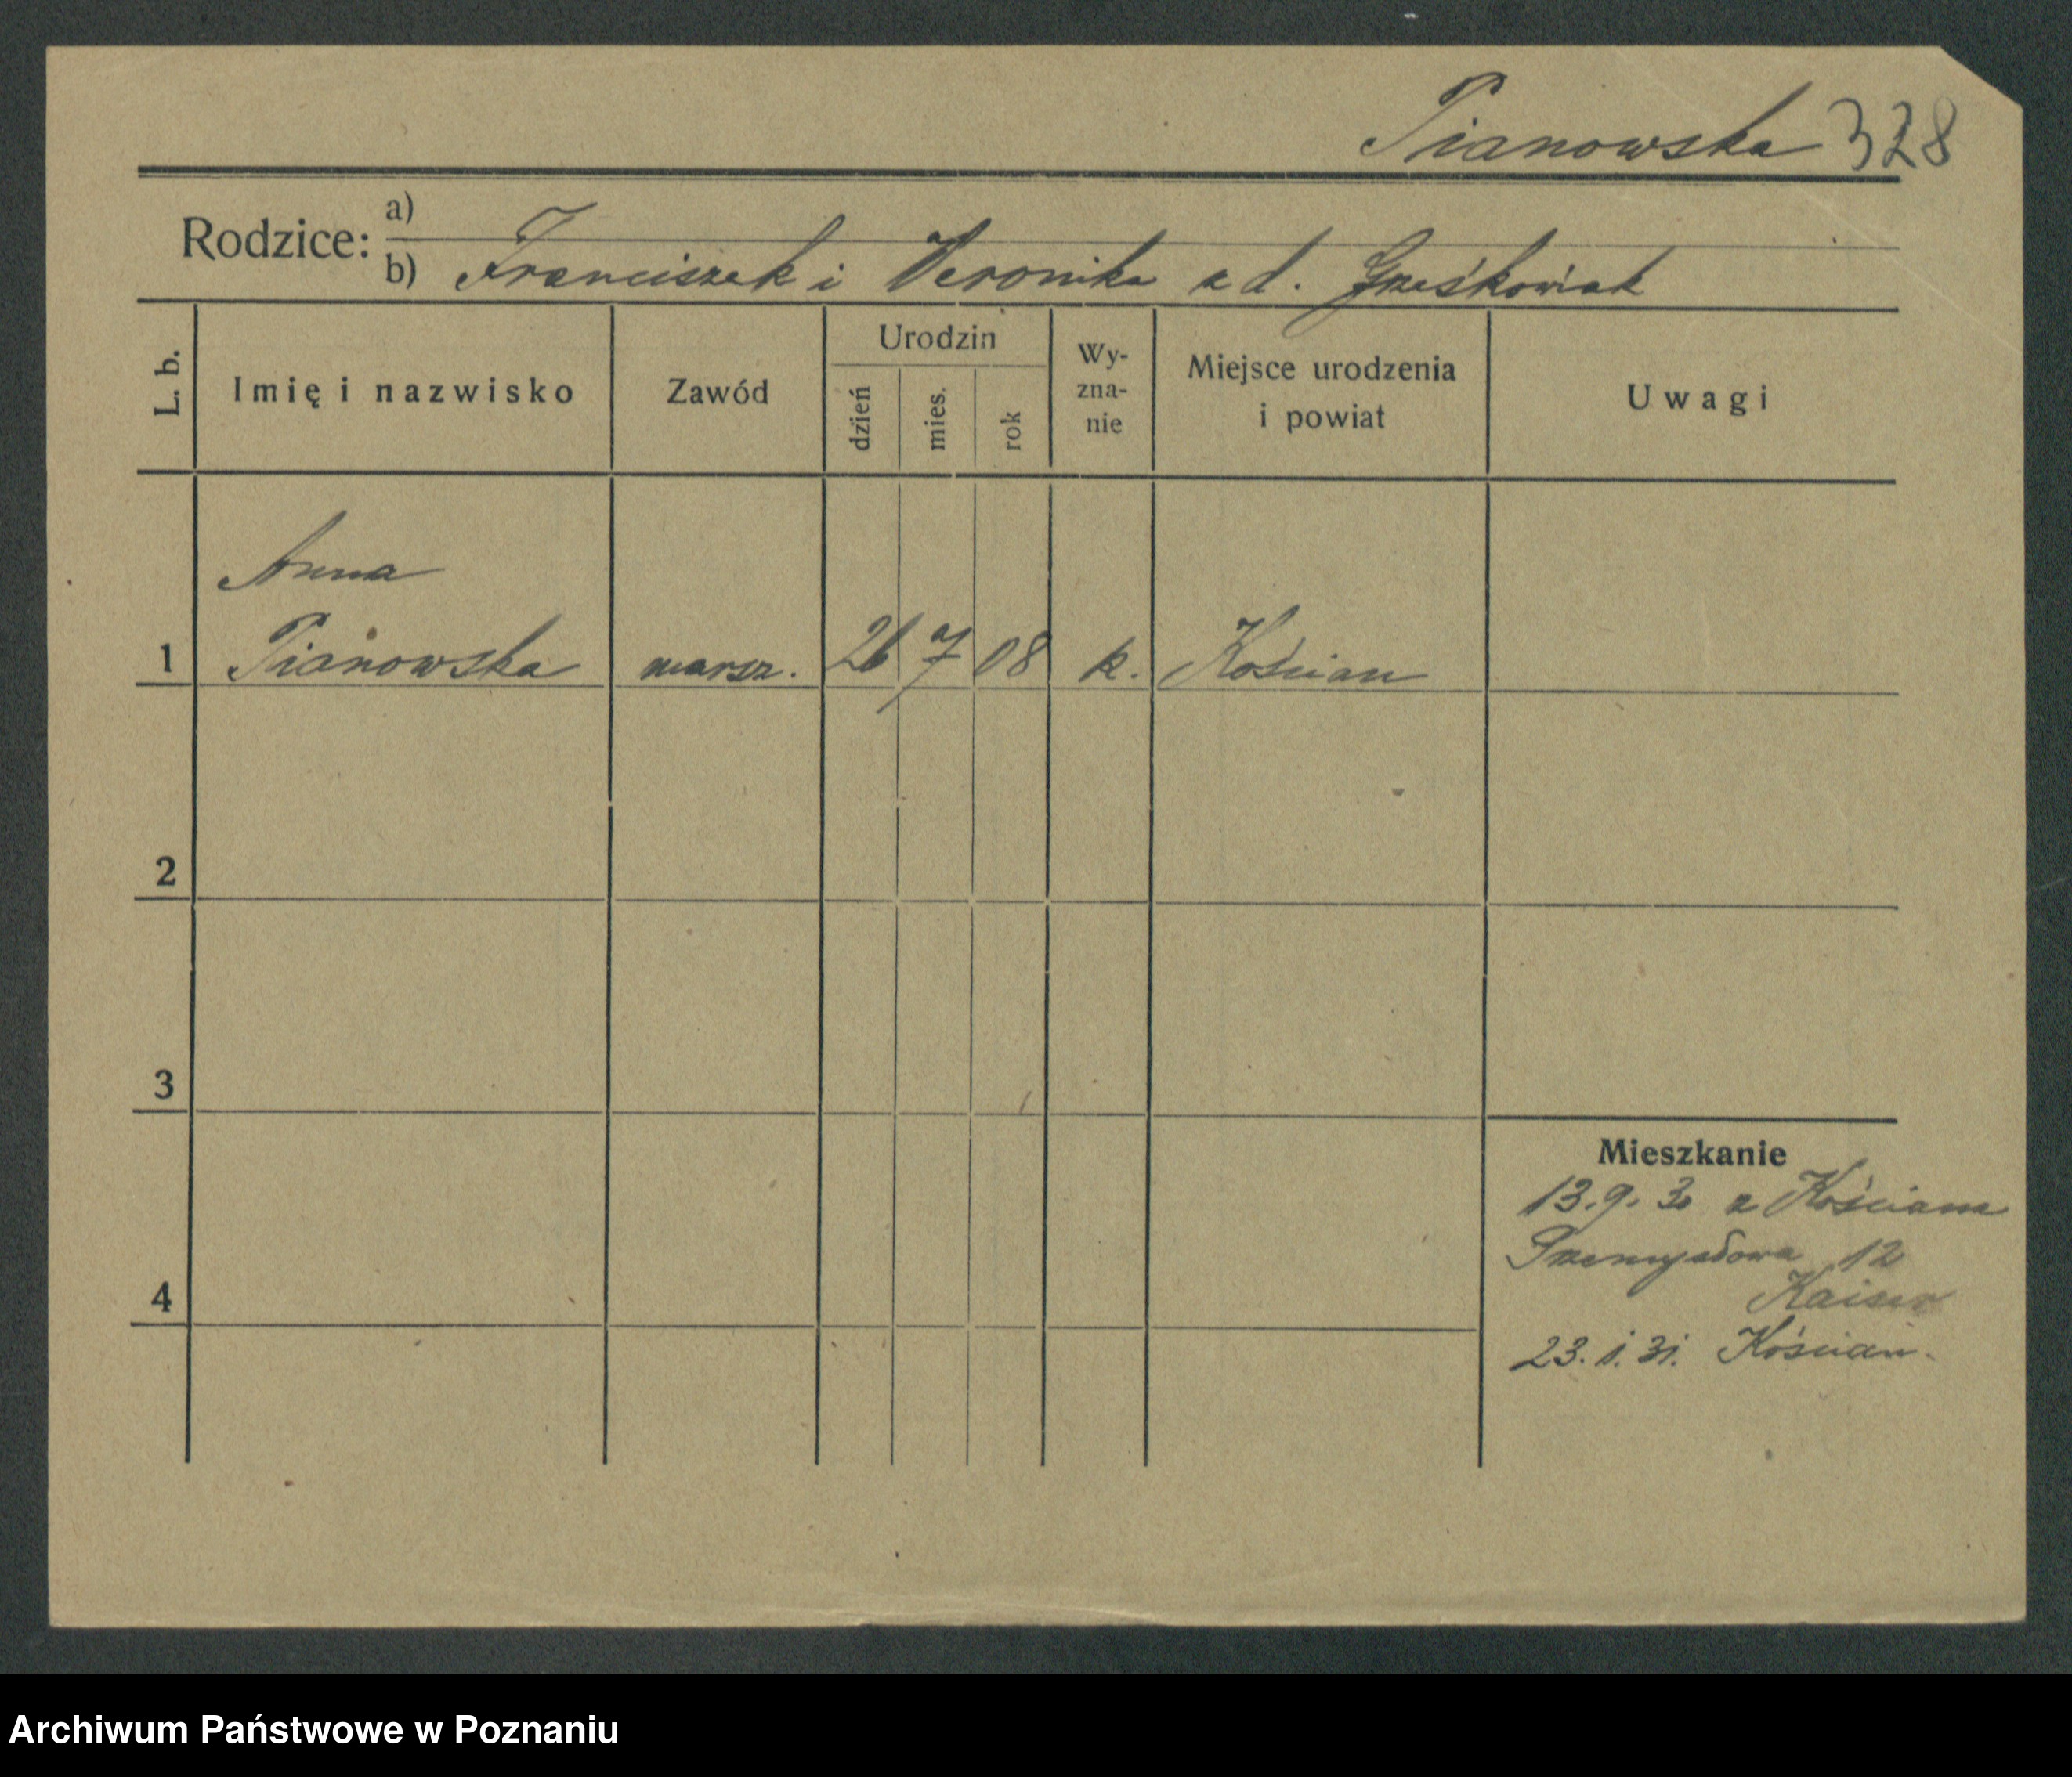 Pianowska 328
Rodzice: a)
b) Franciszek i Weronika z d. Grześkowiak
L. b.
Imię i nazwisko
Zawód
Urodzin
dzień
mies.
rok
Wy-
zna-
nie
Miejsce urodzenia
i powiat
Uwagi
Anna
1 Pianowska marsz. 26 7 08 k. Kościan
2
3
4
Mieszkanie
13.9.30 z Kościana
Przemysłowa 12
Kaiser
23.1.31. Kościan.
Archiwum Państwowe w Poznaniu